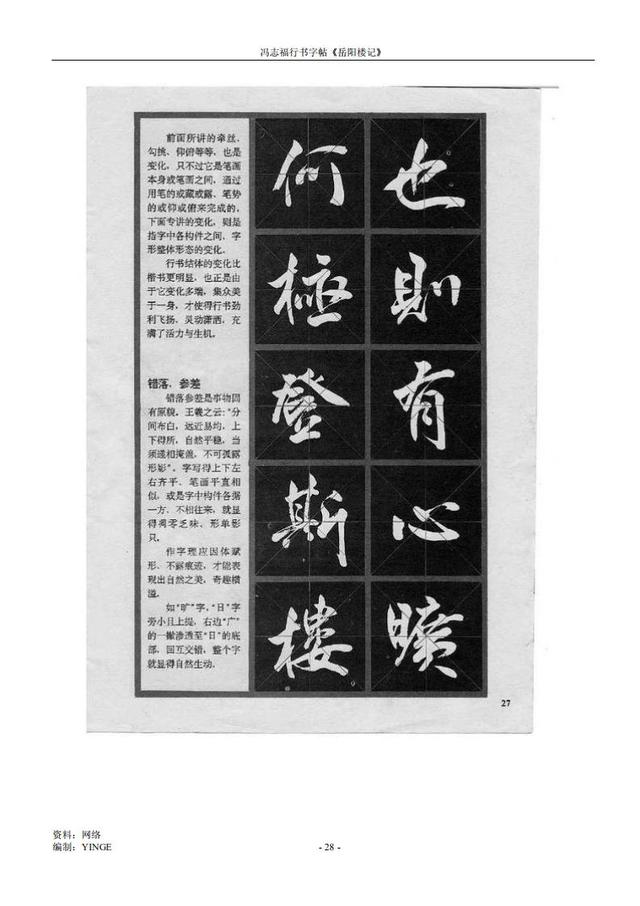 冯志福行书字帖《岳阳楼记》
前面所讲的牵丝、
勾挑、仰俯等等，也是
变化，只不过它是笔画
本身或笔画之间，通过
用笔的或藏或露、笔势
的或仰或俯来完成的，
下面专讲的变化，则是
指字中各构件之间、字
形整体形态的变化。
行书结体的变化比
楷书更明显，也正是由
于它变化多端，集众美
于一身，才使得行书劲
利飞扬，灵动潇洒，充
满了活力与生机。
错落、参差
错落参差是事物固
有原貌。王羲之云：“分
间布白，远近易均，上
下得所，自然平稳，当
须递相掩盖，不可孤露
形影”。字写得上下左
右齐平、笔画平直相
似，或是字中构件各据
一方、不相往来，就显
得凋零乏味、形单影
只。
作字理应因体赋
形、不露痕迹，才能表
现出自然之美，奇趣横
溢。
如“旷”字，“日”字
旁小且上提，右边“广”
的一撇渗透至“日”的底
部，回互交错，整个字
就显得自然生动。
也
則
有
心
曠
何
極
登
斯
樓
27
资料：网络
编制：YINGE
- 28 -